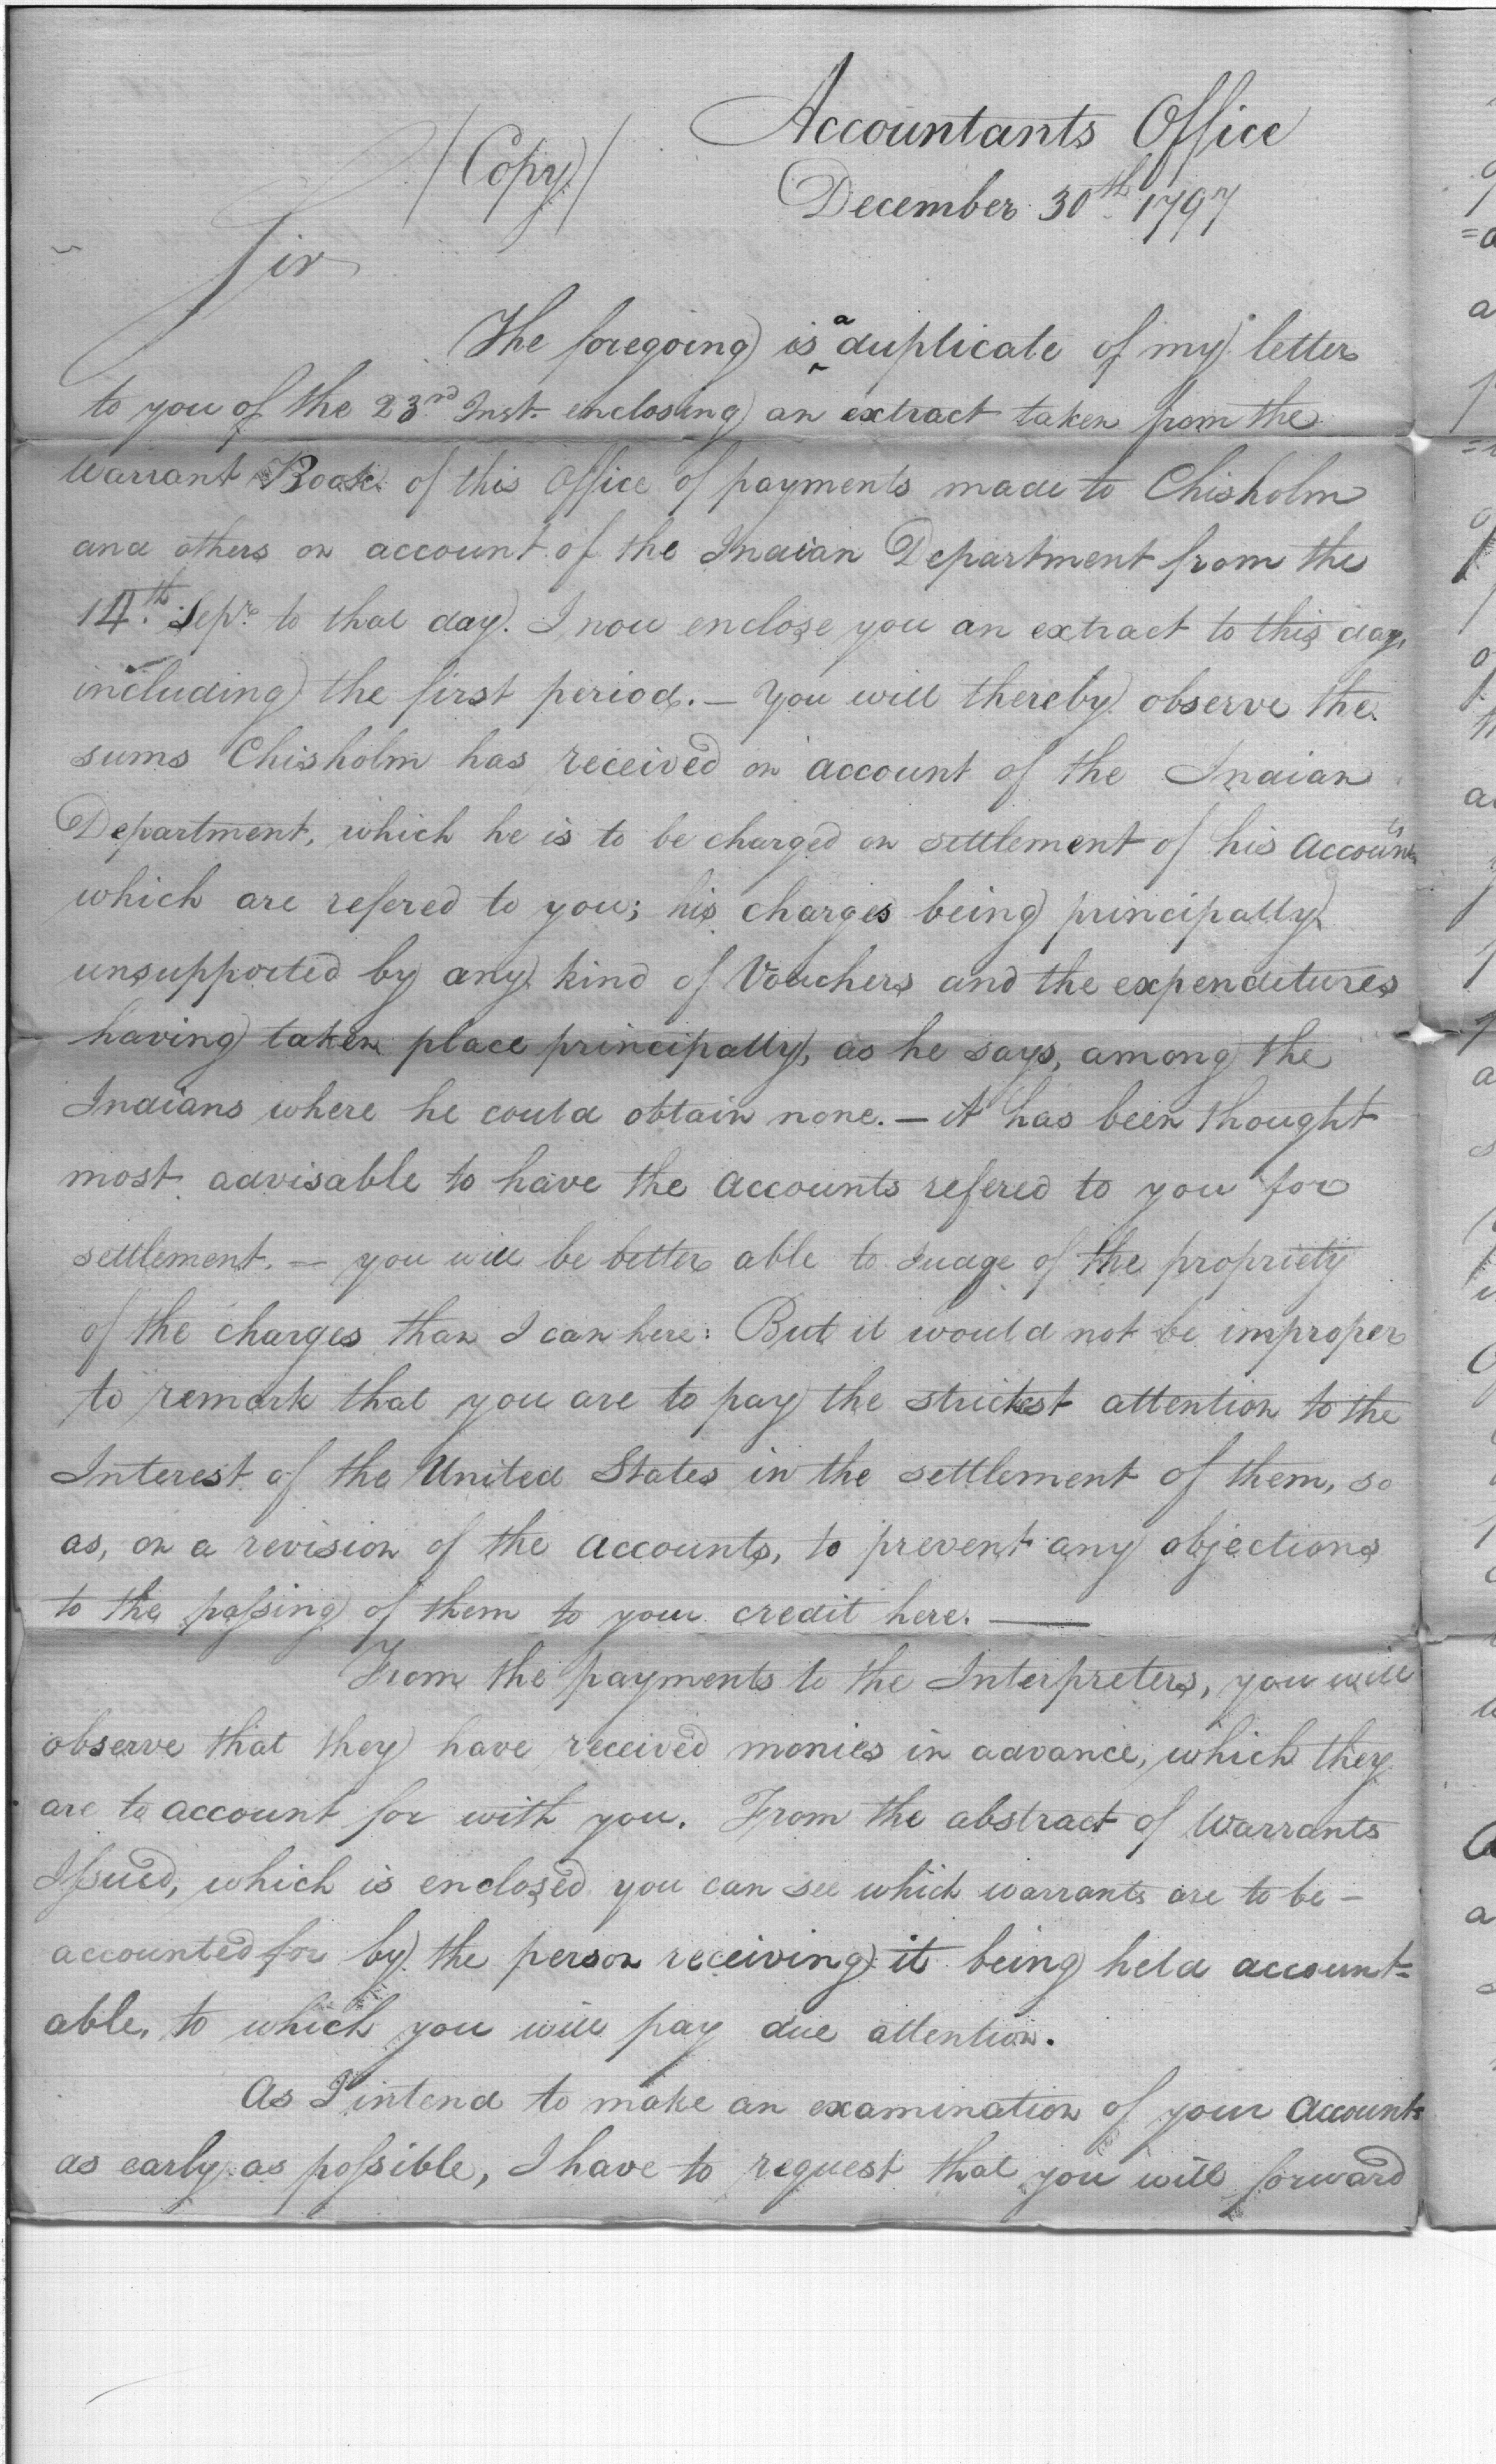 Accountants Office
(Copy)
December 30th 1797
Sir
The foregoing is a duplicate of my letter
to you of the 23rd Inst. enclosing an extract taken from the
Warrant Book of this Office of payments made to Chisholm
and others on account of the Indian Department from the
14th Sepr. to that day. I now enclose you an extract to this day,
including the first period. — You will thereby observe the
sums Chisholm has received on account of the Indian
Department, which he is to be charged on settlement of his Accounts
which are refered to you; his charges being principally
unsupported by any kind of Vouchers and the expenditures
having taken place principally, as he says, among the
Indians where he could obtain none. — it has been thought
most advisable to have the accounts refered to you for
settlement. — you will be better able to Judge of the propriety
of the charges than I can here: But it would not be improper
to remark that you are to pay the strictest attention to the
Interest of the United States in the settlement of them, so
as, on a revision of the accounts, to prevent any objections
to the passing of them to your credit here. —
From the payments to the Interpreters, you will
observe that they have received monies in advance, which they
are to account for with you. From the abstract of Warrants
Issued, which is enclosed you can see which warrants are to be —
accounted for by the person receiving it being held account=
able, to which you will pay due attention.
As I intend to make an examination of your Accounts
as early as possible, I have to request that you will forward